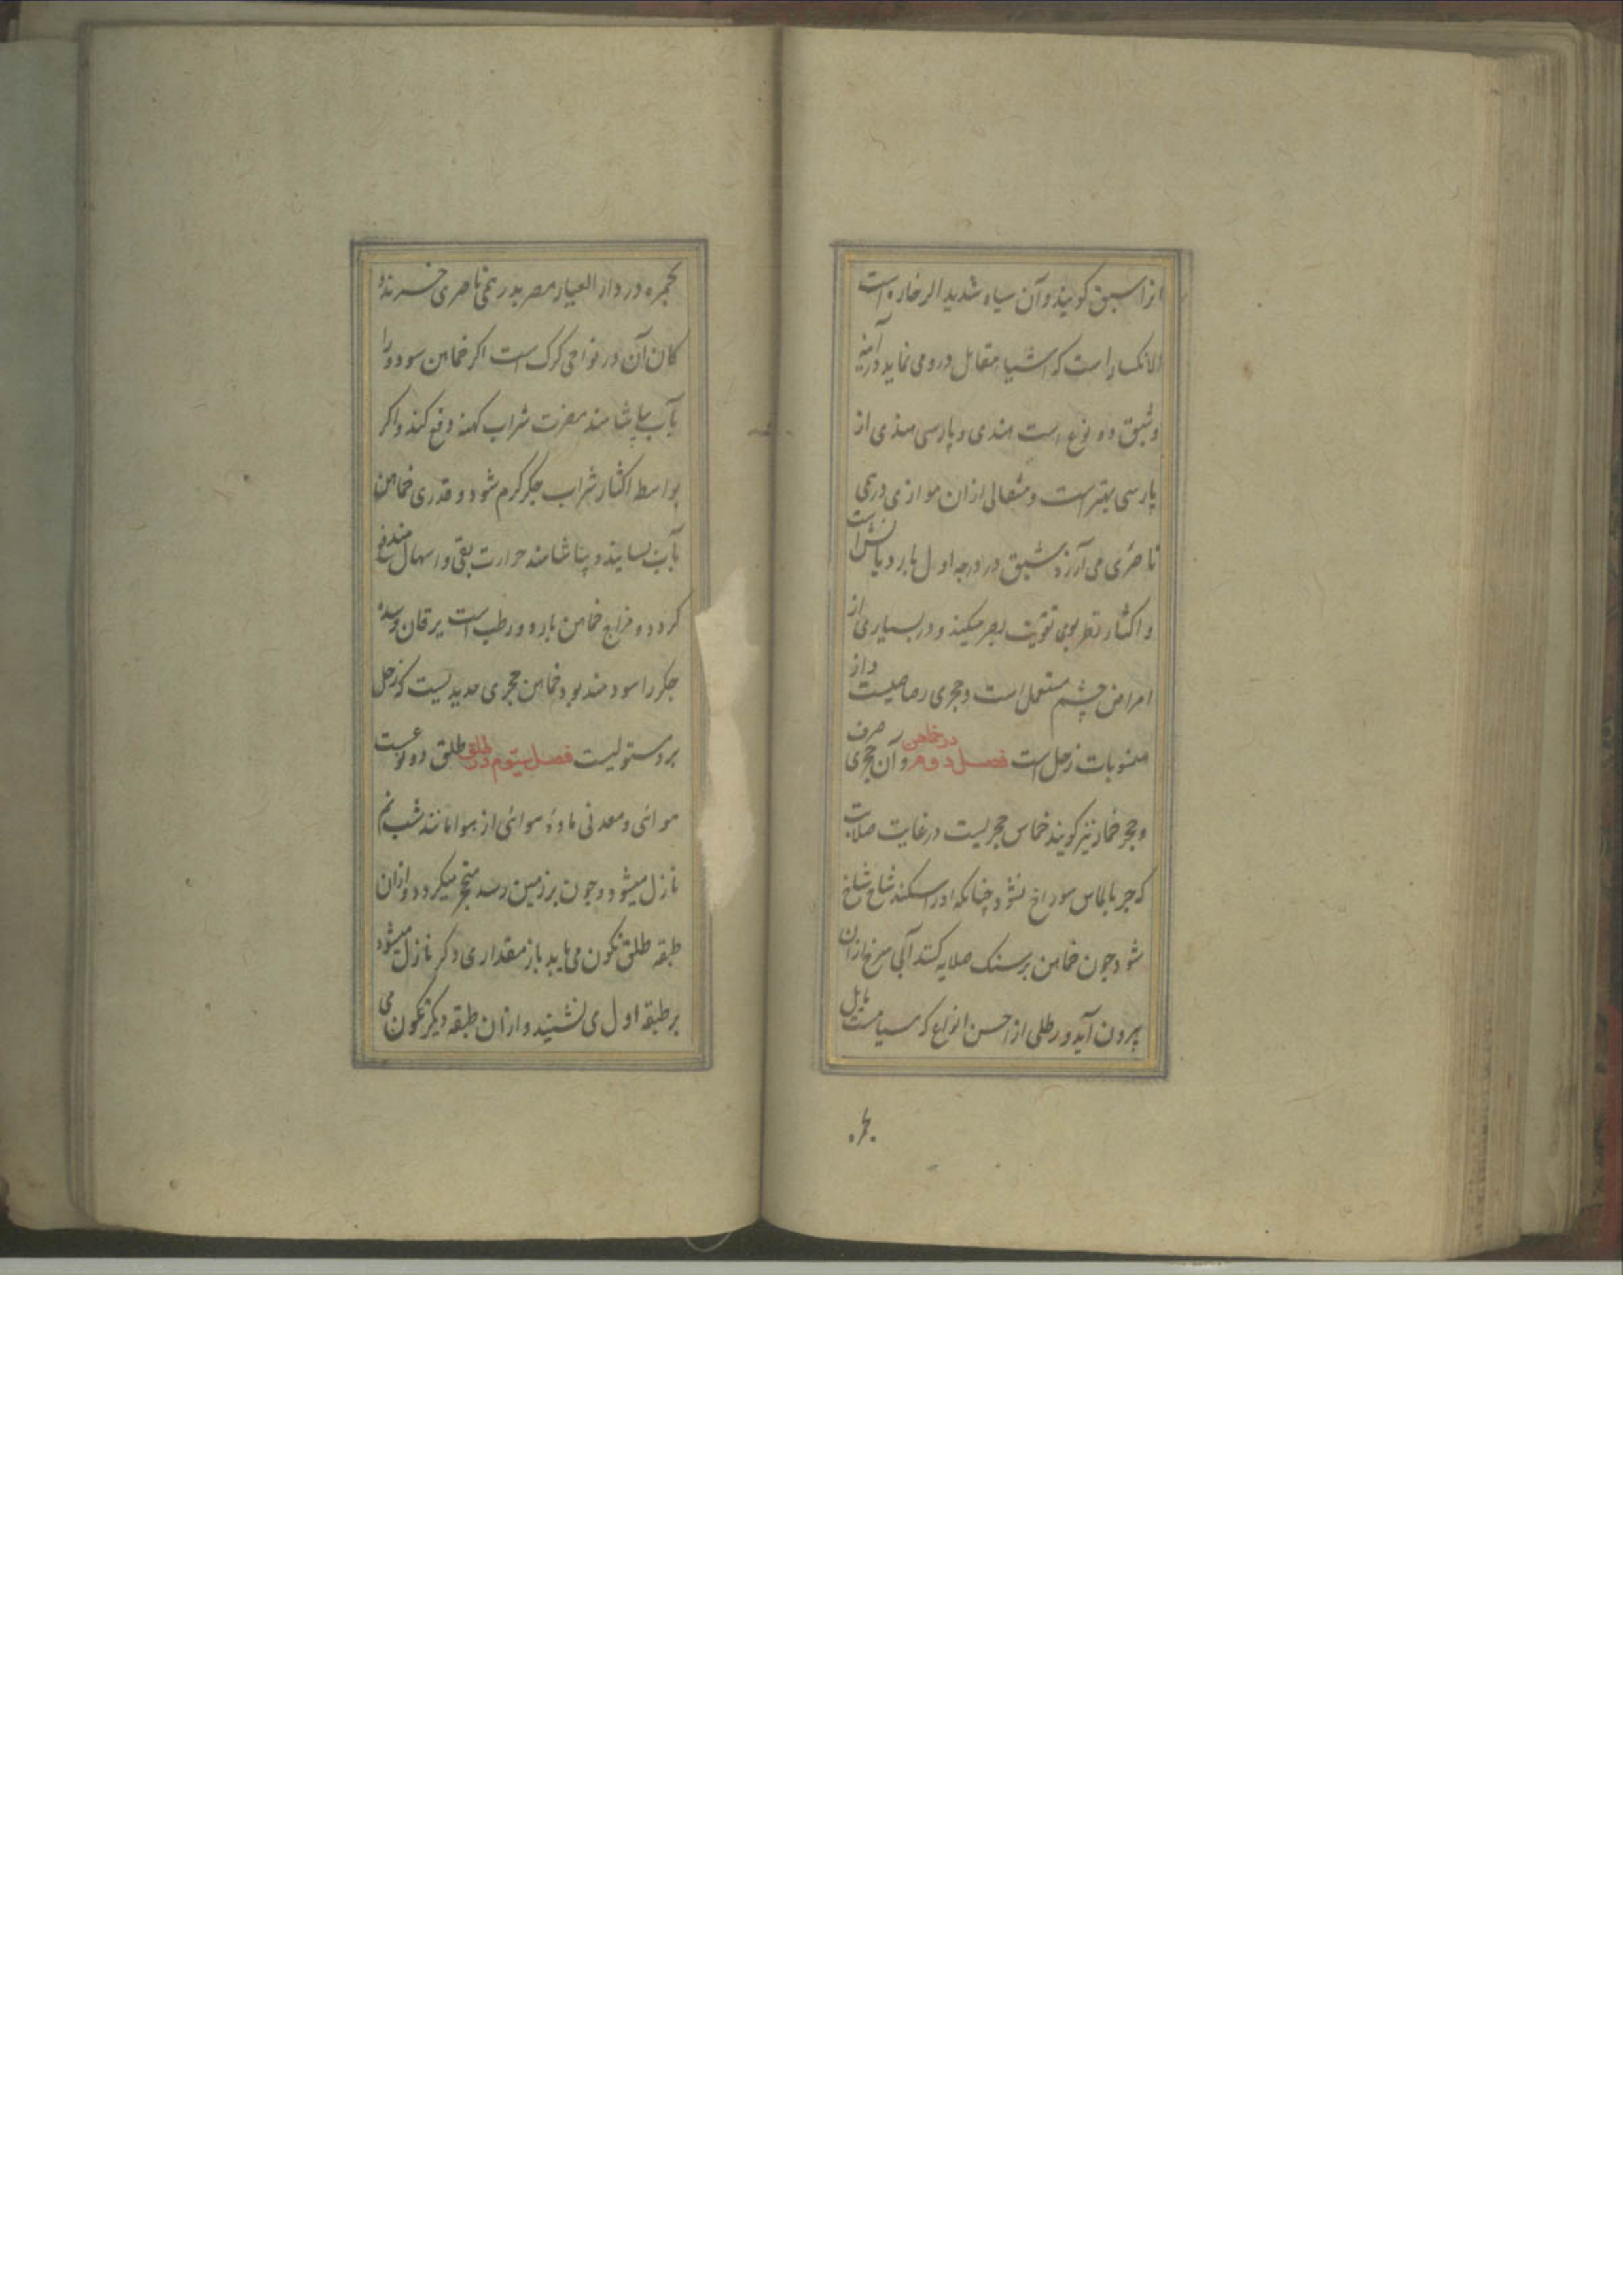 انرا سبق کویند و آن سیاه شدید الرخاوه است
الانکسار است که اشیا مقابل درو می نماید در آینه
و شبق دو نوع است هندی و پارسی هندی از
پارسی بهتر است و مثقالی از ان موازی درمی
ناصری می آرزد شبق در درجه اول بارد یابس است
و اکثار نظر بوی تقویت بصر میکند و در بسیاری از
امراض چشم مستعمل است و حجری رصاصیست و از
منسوبات زحل است فصل دوم در خماهن و آن حجری صرف
و حجر خمار نیز کویند خماهن حجریست در غایت صلابت
که جز بالماس سوراخ نشود چنانکه اورا بشکنند شاخ شاخ
شود جون خماهن بر سنک صلایه کنند آبی سرخ از ان
بیرون آید و رطلی از احسن انواع که بسیاهی مایل است
بحمره
بحمره در دار العیار مصر بدرهمی ناصری خرند و
کان آن در نواحی کرک است اکر خماهن سوده را
بآب بیاشامند مضرت شراب کهنه دفع کند و اکر
بواسطه اکثار شراب جکر کرم شود و قدری خماهن
بآب بسایند و بیاشامند حرارت بقی و اسهال مندفع
کردد و مزاج خماهن بارد و رطب است یرقان و سده
جکر را سودمند بود خماهن حجری حدیدیست که زحل
برو مستولیست فصل سیوم در طلق طلق دو نوعست
هوائی و معدنی ماده هوائی از هوا مانند شب نم
نازل میشود و جون بر زمین رسد متحجر میکردد و ازان
طبقه طلق تکون می یابد باز مقداری دکر نازل میشود
بر طبقه اول می نشیند و از ان طبقه دیکر تکون می